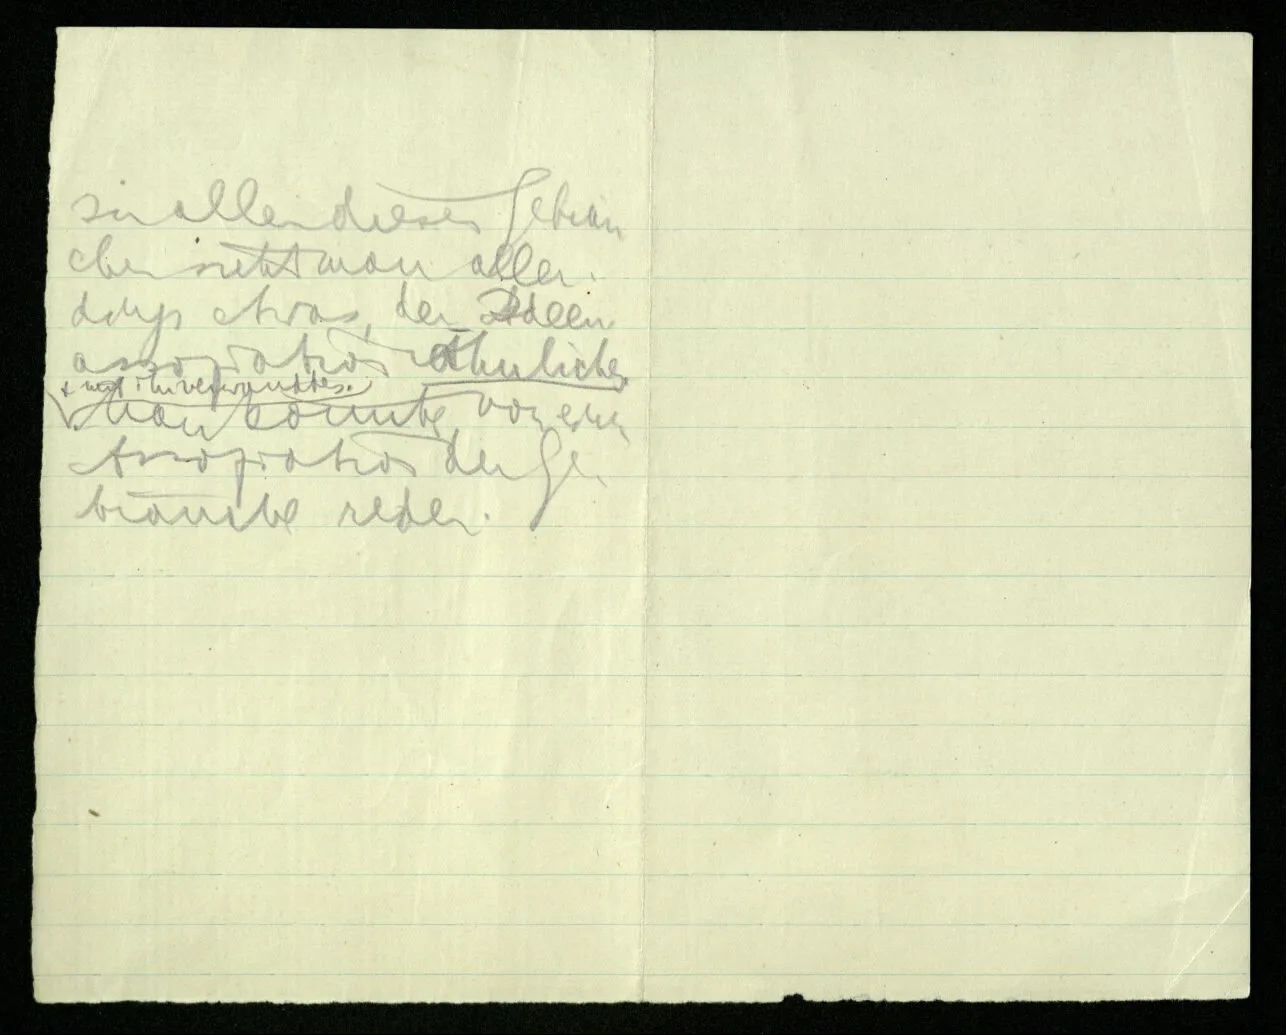 In allen diesen Gebräu
chen sieht man aller-
dings etwas, der Ideen
assoziation Ähnliches
+ mit ihr verwandtes.
Man könnte von einer
Assoziation der Ge
bräuche reden.